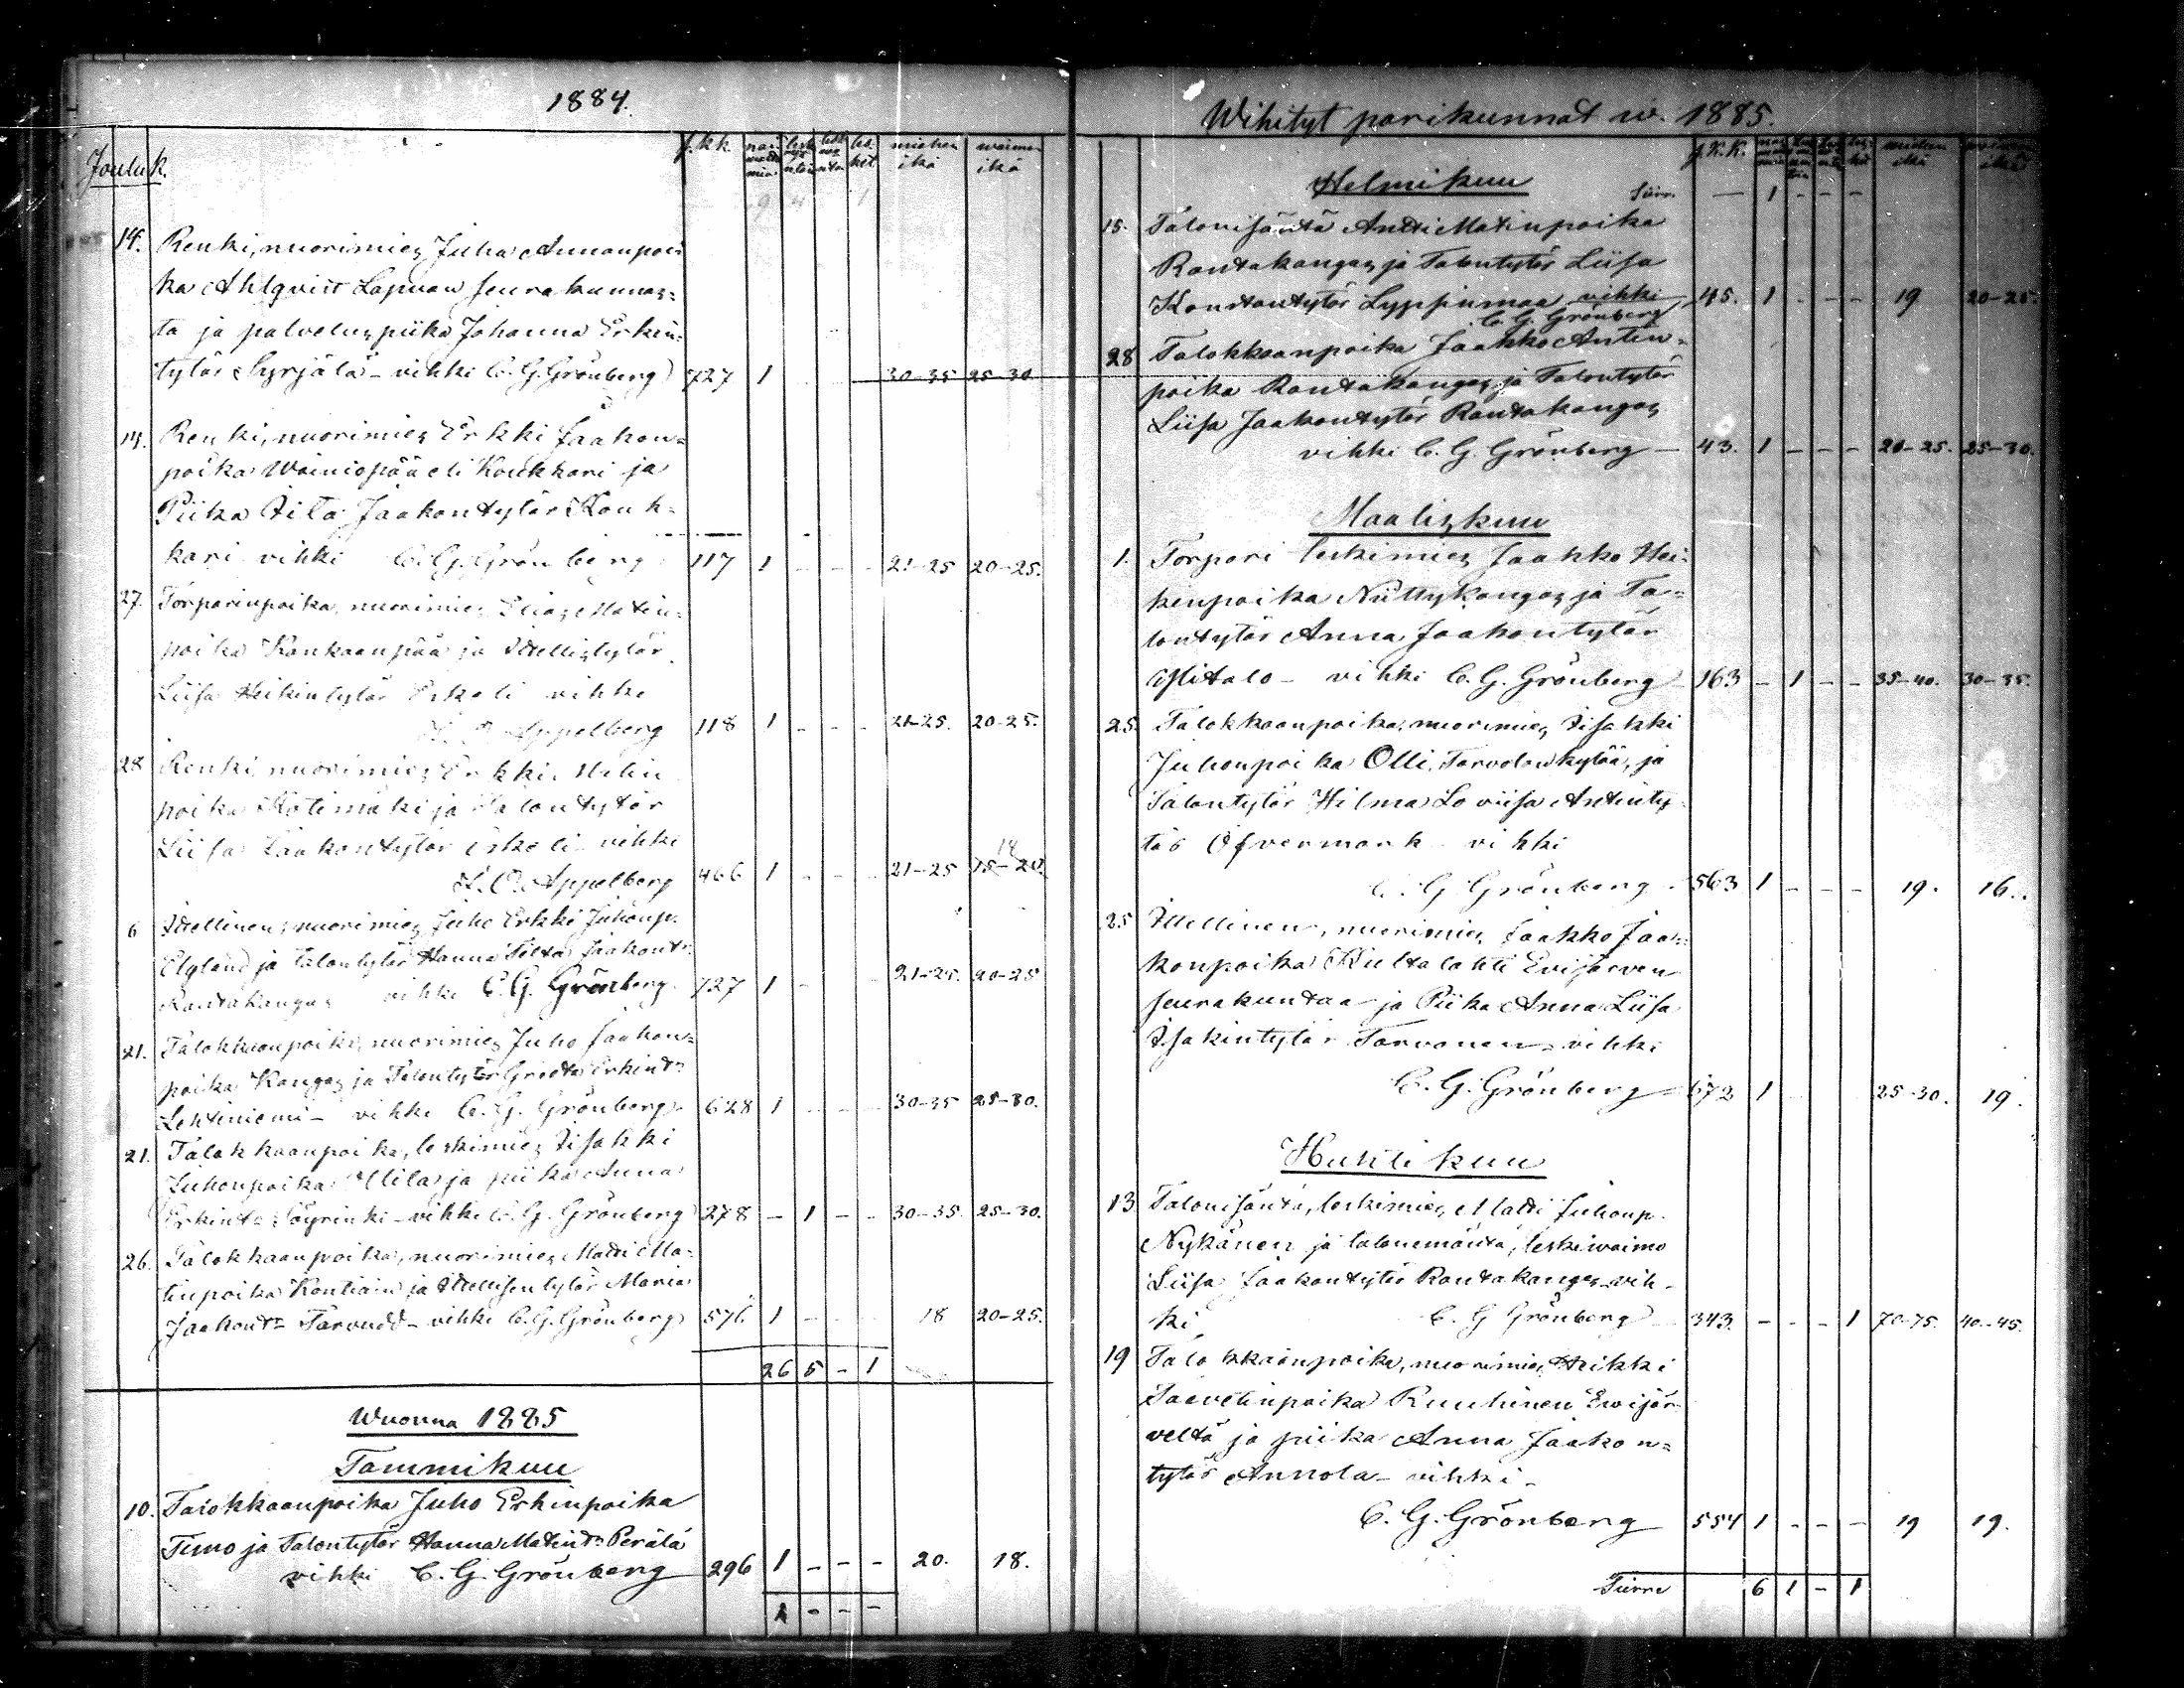 1884.
Jouluk.
s. kk. miehen ikä waimon ikä
14. Renki, nuorimies Juha Annanpoi-
ka Ahlqvist Lapuan seurakunnas-
ta ja palveluspiika Johanna Erkin-
tytär Syrjälä - vihki C. G. Grönberg 727 1 30-35 25-30
14. Renki, nuorimies Erkki Jaakon-
poika Wainiopää eli Koukkari ja
Piika Fita Jaakontytär Kouk-
kari vihki C. G. Grönberg 117 1 - - - 21-25 20-25.
27. Torparinpoika, nuorimies Elias Matin-
poika Kankaanpää ja Itellistytär
Liisa Heikintytär Erkoli vihki
Appelberg 118 1 - - - 21-25. 20-25.
28 Renki, nuorimies Erkki
poika Kotimäki ja Talontytär
Liisa Jaakontytär vihki
Appelberg 466 1 - - - 21-25 15-20. 18
6 Itellinen, nuorimies Juho Erkki Juhonp.
Elgland ja talontytär Hanna Jaakontr
Rantakangas vihki C. G. Grönberg. 727 1 - - 21-25. 20-25
21. Talokkaanpoika, nuorimies Juho Jaakon-
poika Kangas ja Talontytär Greeta Erkintr
Lehtiniemi - vihki C. G. Grönberg 628 1 - - - 30-35 25-30.
21. Talokkaanpoika, leskimies Iisakki
Juhonpoika ja piika Anna
Erkintr Söyrinki - vihki C. G. Grönberg 278 - 1 - - 30-35. 25-30.
26. Talokkaanpoika, nuorimies Matti Ma-
tinpoika Kontiain ja Itellisen tytär Maria
Jaakontr Tarvudd - vihki C. G. Grönberg 576. 1 - - 18 20-25.
26 5 - 1
Wuonna 1885
Tammikuu
10. Talokkaanpoika Juho Erkinpoika
Timo ja Talontytär Hanna Matintr Perälä
vihki C. G. Grönberg 296 1 - - - 20. 18.
1 - - -
Wihityt parikunnat w. 1885.
s. K. K. miehen ikä waimon ikä
Helmikuu
Siirr. — 1 - - -
15. Talonisäntä Antti Matinpoika
Rantakangas ja Talontytär Liisa
Konstantytär Lyppinmaa vihki 45. 1 - - - 19 20-25.
C. G. Grönberg
28 Talokkaanpoika Jaakko Antin-
poika Rantakangas ja Talontytär
Liisa Jaakontytär Rantakangas
vihki C. G. Grönberg — 43. 1 - - - 20-25. 25-30.
Maaliskuu
1. Torpari leskimies Jaakko Hei-
kinpoika Niittykangas ja Ta-
lontytär Anna Jaakontytär
Ylitalo - vihki C. G. Grönberg 163 - 1 - - 35-40. 30-35.
25. Talokkaanpoika, nuorimies Iisakki
Juhonpoika Olli, Tarvolan kylää, ja
Talontytär Hilma Loviisa Antinty-
tär Öfvermark vihki
C. G. Grönberg 563 1 - - - 19. 16.
25 Itellinen, nuorimies, Jaakko Jaa-
konpoika Kultalahti Evijärven
seurakuntaa ja Piika Anna Liisa
Isakintytär Tarvonen vihki
C. G. Grönberg 672 1 25-30. 19.
Huhtikuu
13 Talonisäntä, leskimies, Matti Juhonp.
Nykänen ja talonemäntä, leskiwaimo
Liisa Jaakontytär Rantakangas vih-
ki C. G. Grönberg 343. - - - 1 70-75. 40-45.
19 Talokkaanpoika, nuorimies Heikki
Taavetinpoika Ruuhinen Ewijär-
veltä ja piika Anna Jaakon-
tytär Annola - vihki -
C. G. Grönberg 554 1 - - - 19 19.
Siirre 6 1 - 1